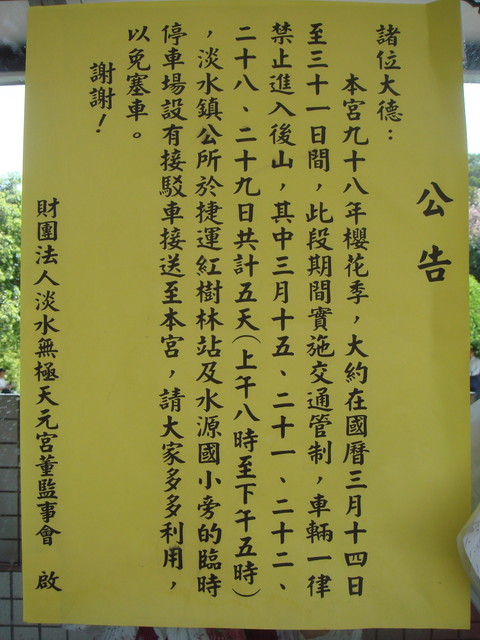 公告
諸位大德：
本宮九十八年櫻花季，大約在國曆三月十四日
至三十一日間，此段期間實施交通管制，車輛一律
禁止進入後山，其中三月十五、二十一、二十二、
二十八、二十九日共計五天(上午八時至下午五時)
，淡水鎮公所於捷運紅樹林站及水源國小旁的臨時
停車場設有接駁車接送至本宮，請大家多多利用，
以免塞車。
謝謝！
財團法人淡水無極天元宮董監事會 啟